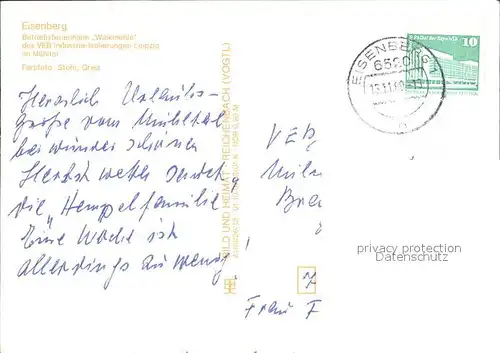 Eisenberg
Betriebsferienheim „Walkmühle"
des VEB Industrie-Isolierungen Leipzig
im Mühltal
Farbfoto: Stops, Greiz
Herzlich Urlaubs-
grüße vom Mühltal
bei wunderschönen
Herbstwetter sendet
die „Hempelfamilie
Eine Woche ist
allerdings zu wenig.
BILD UND HEIMAT REICHENBACH (VOGTL)
EISENBERG 1
6520
10
VEB
Frau F
privacy protection
Datenschutz